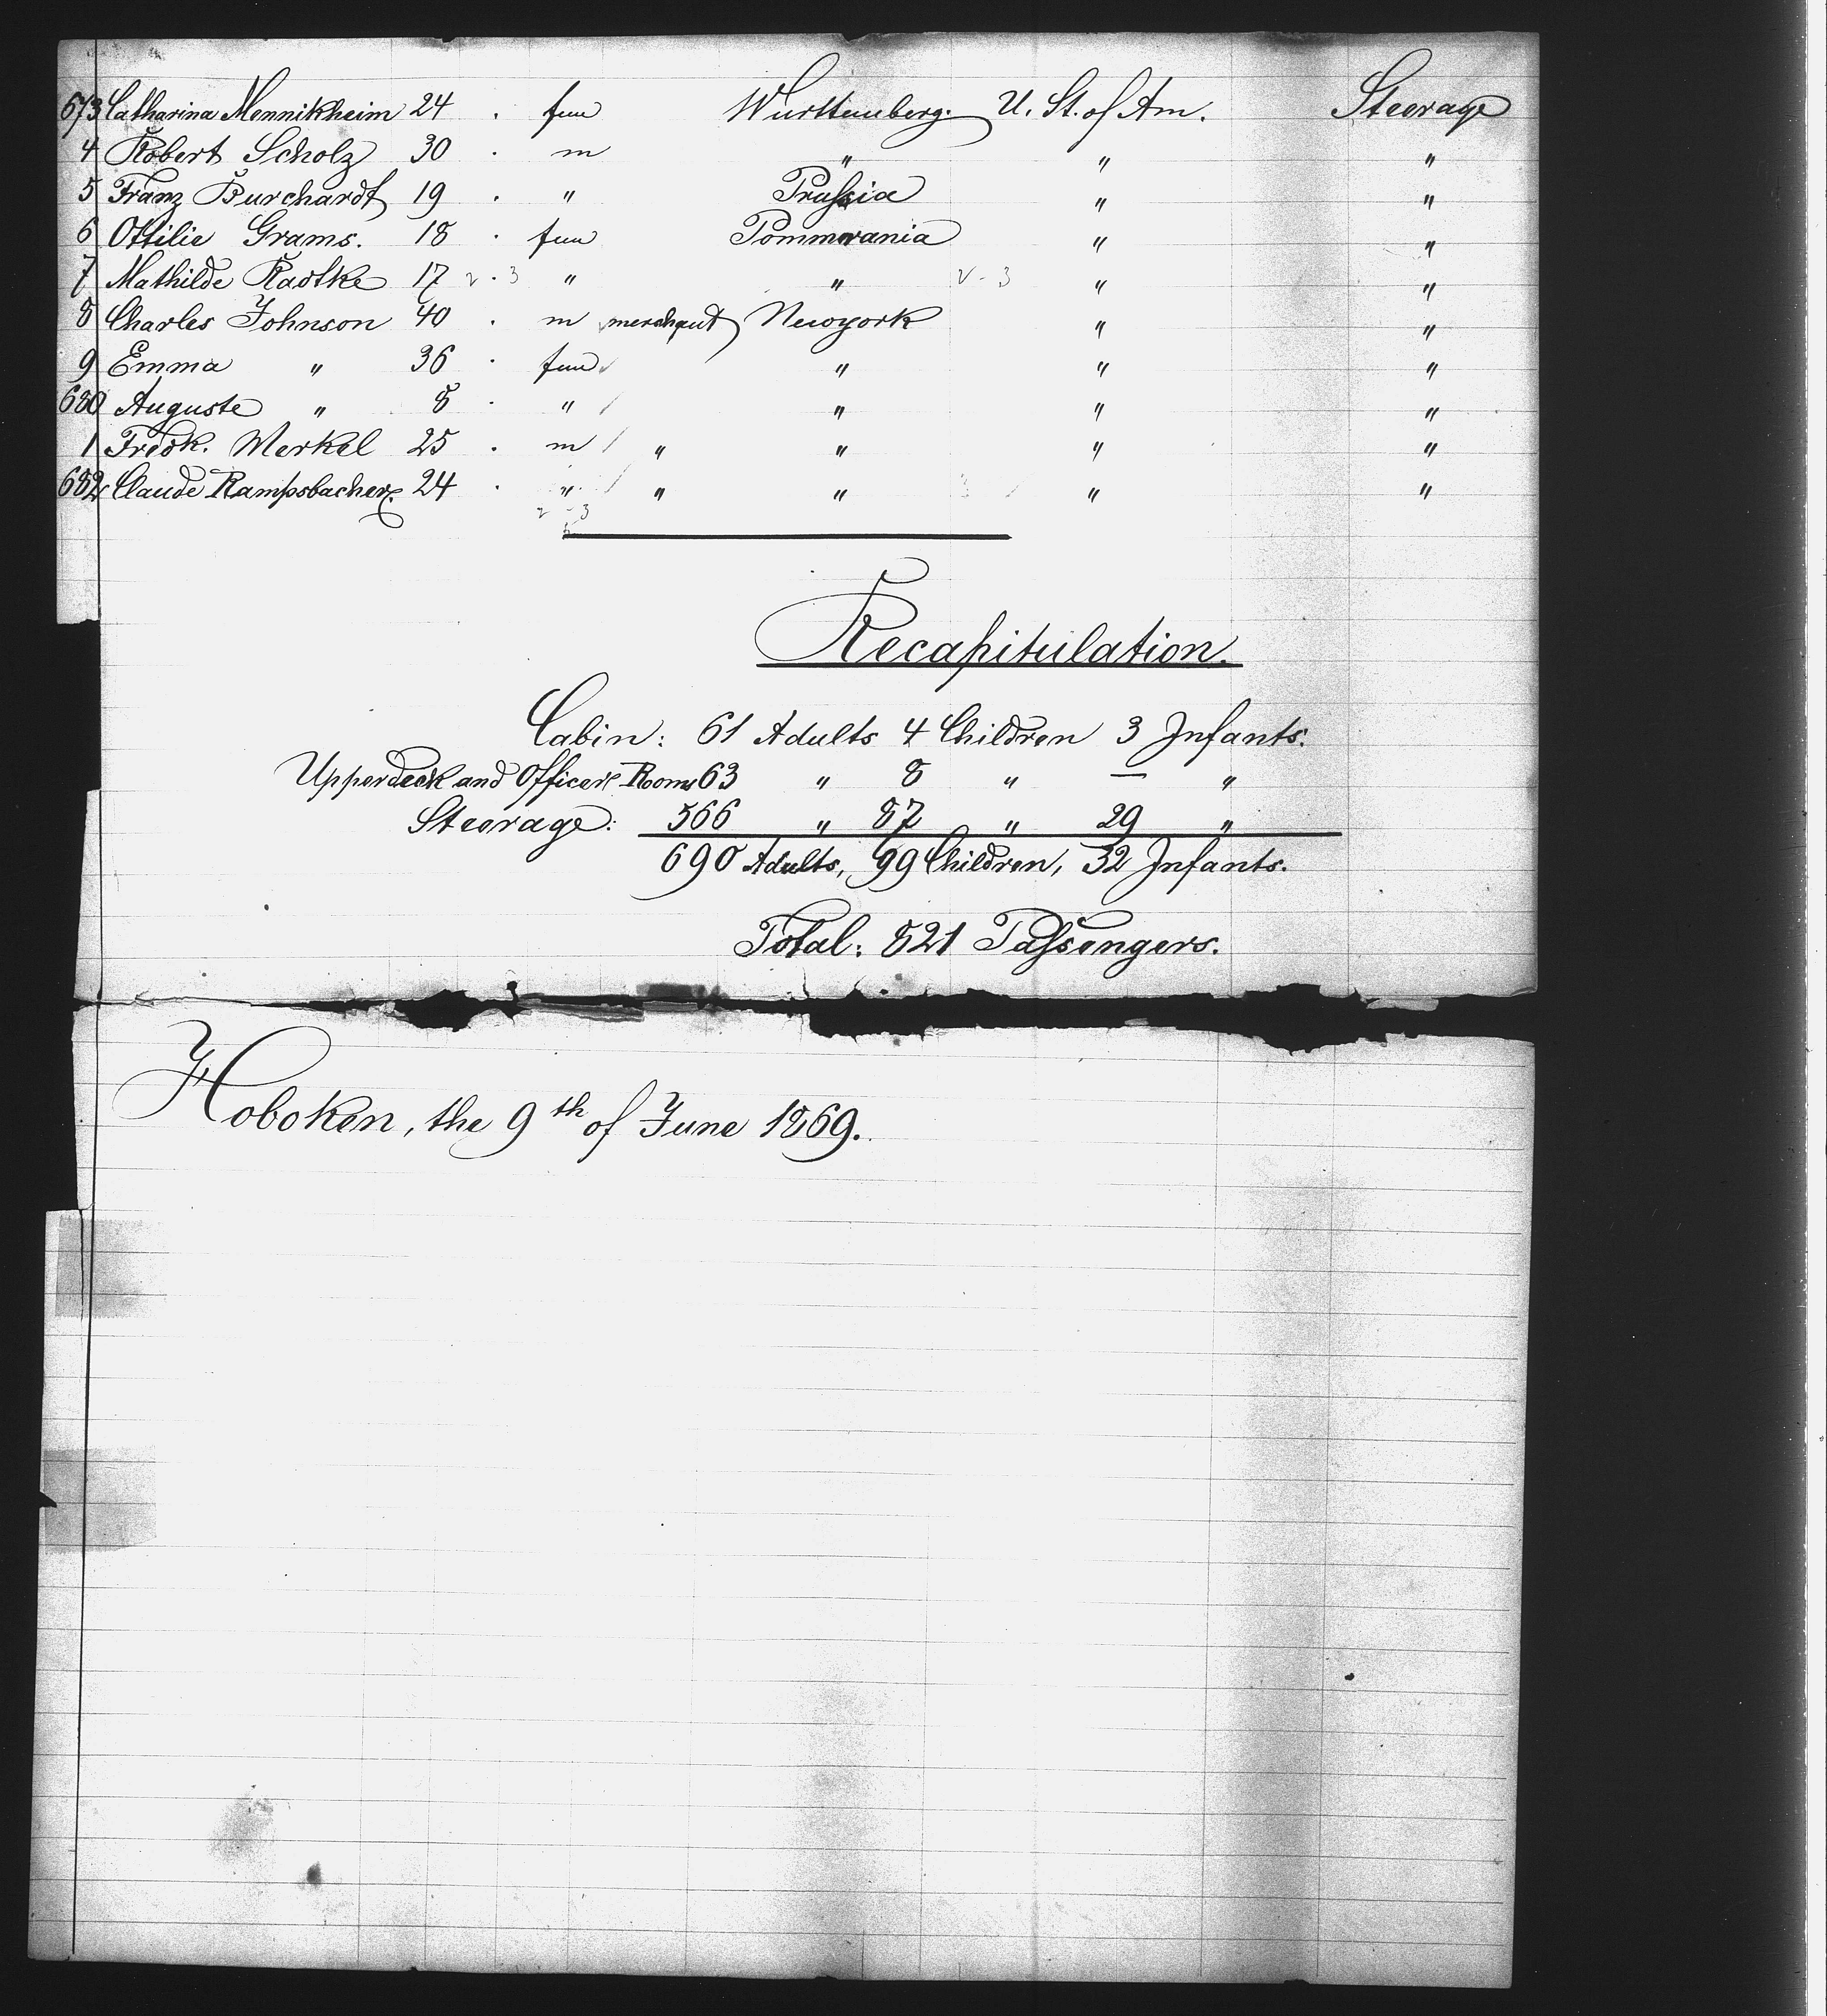 673 Catharina Mennikheim 24 . fem Wurttemberg. U. St. of Am. Steerage
4 Robert Scholz 30 . m " " "
5 Franz Burchardt 19 . " Prussia " "
6 Ottilie Grams. 18 . fem Pommerania " "
7 Mathilde Radtke 17 2 . 3 " " 2 - 3 " "
8 Charles Johnson 40 . m merchant Newyork " "
9 Emma " 36 . fem " " "
680 Auguste " 8 . " " " "
1 Fredk. Merkel 25 . m " " " "
682 Claude Rampsbacher 24 . " " " " "
2 - 3
Recapitulation.
Cabin: 61 Adults 4 Children 3 Infants.
Upperdeck and Officers Rooms 63 " 8 " — "
Steerage: 566 " 87 " 29 "
690 Adults, 99 Children, 32 Infants.
Total: 821 Passengers.
Hoboken, the 9th of June 1869.